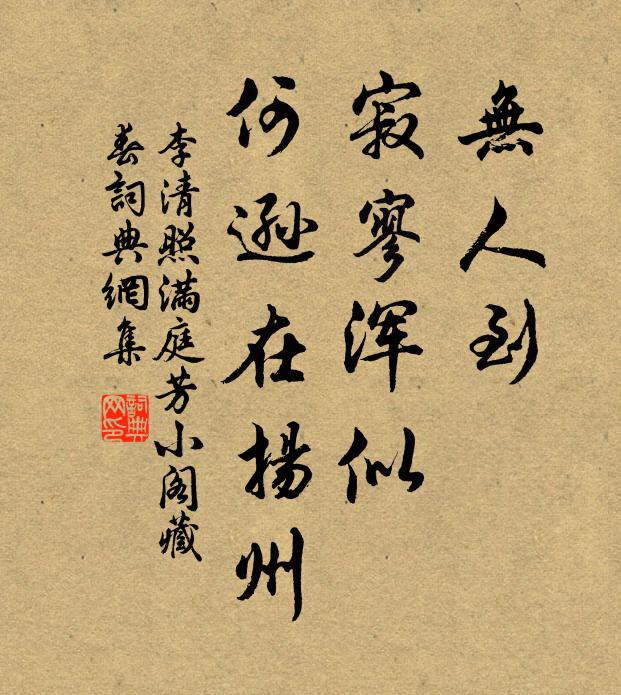 無人到
寂寥浑似
何遜在揚州
李清照滿庭芳小阁藏
春詞典網集
詞典
网印